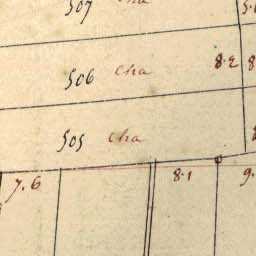 507 Cha
506 Cha 8.2
505 Cha
7.6 8.1 9.